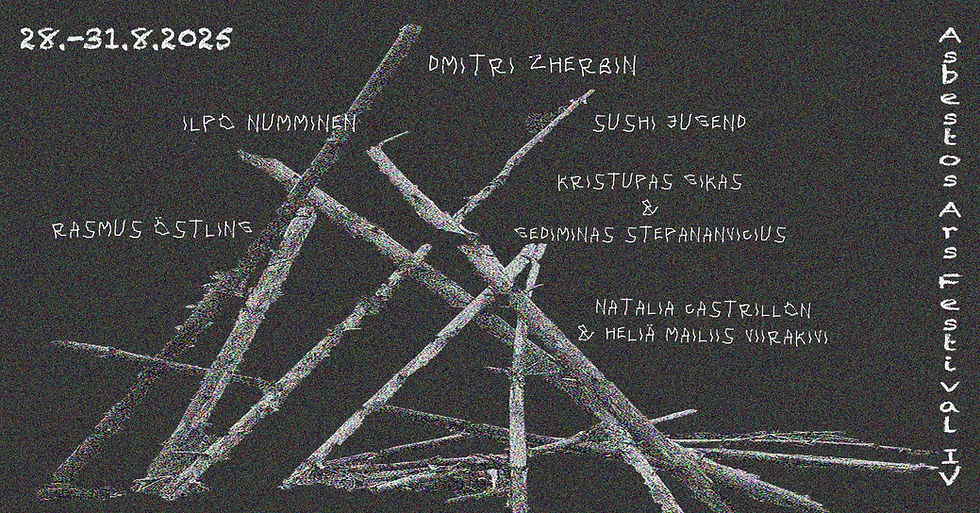 28.-31.8.2025
DMITRI ZHERBIN
ILPO NUMMINEN
SUSHI JUGEND
KRISTUPAS GIKAS
&
GEDIMINAS STEPANANVICIUS
RASMUS ÖSTLING
NATALIA CASTRILLON
& HELIÄ MAILIIS VIIRAKIVI
Asbestos Ars Festival IV